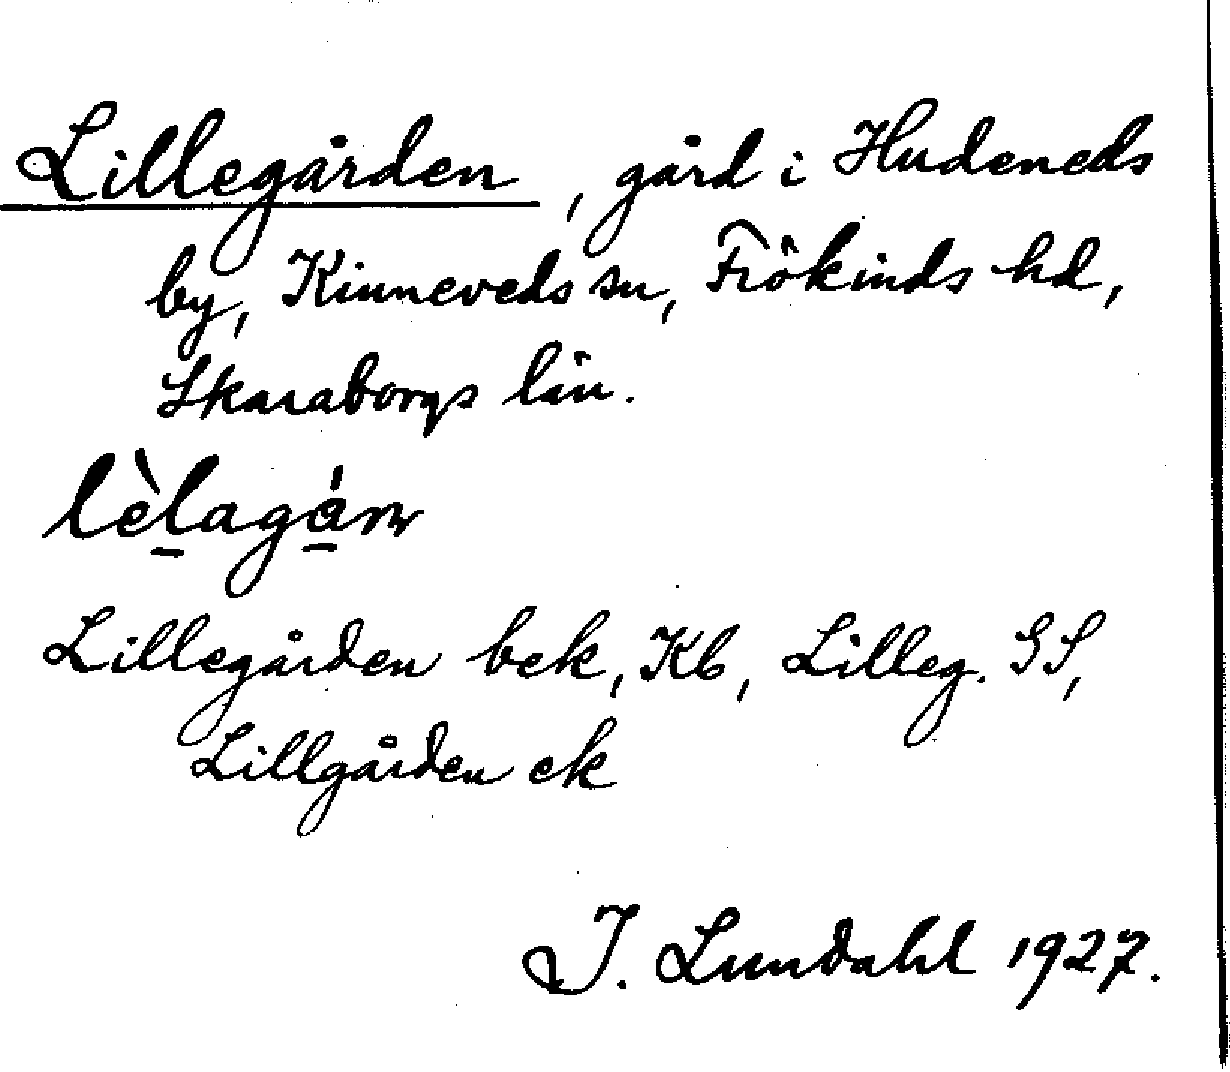 Lillegården, gård i Hudeneds
by, Kinneveds sn, Frökinds hd,
Skaraborgs län.
lèlagá̱rn
Lillegården bek, Kb, Lilleg. GS,
Lillgården ek
I. Lundahl 1927.